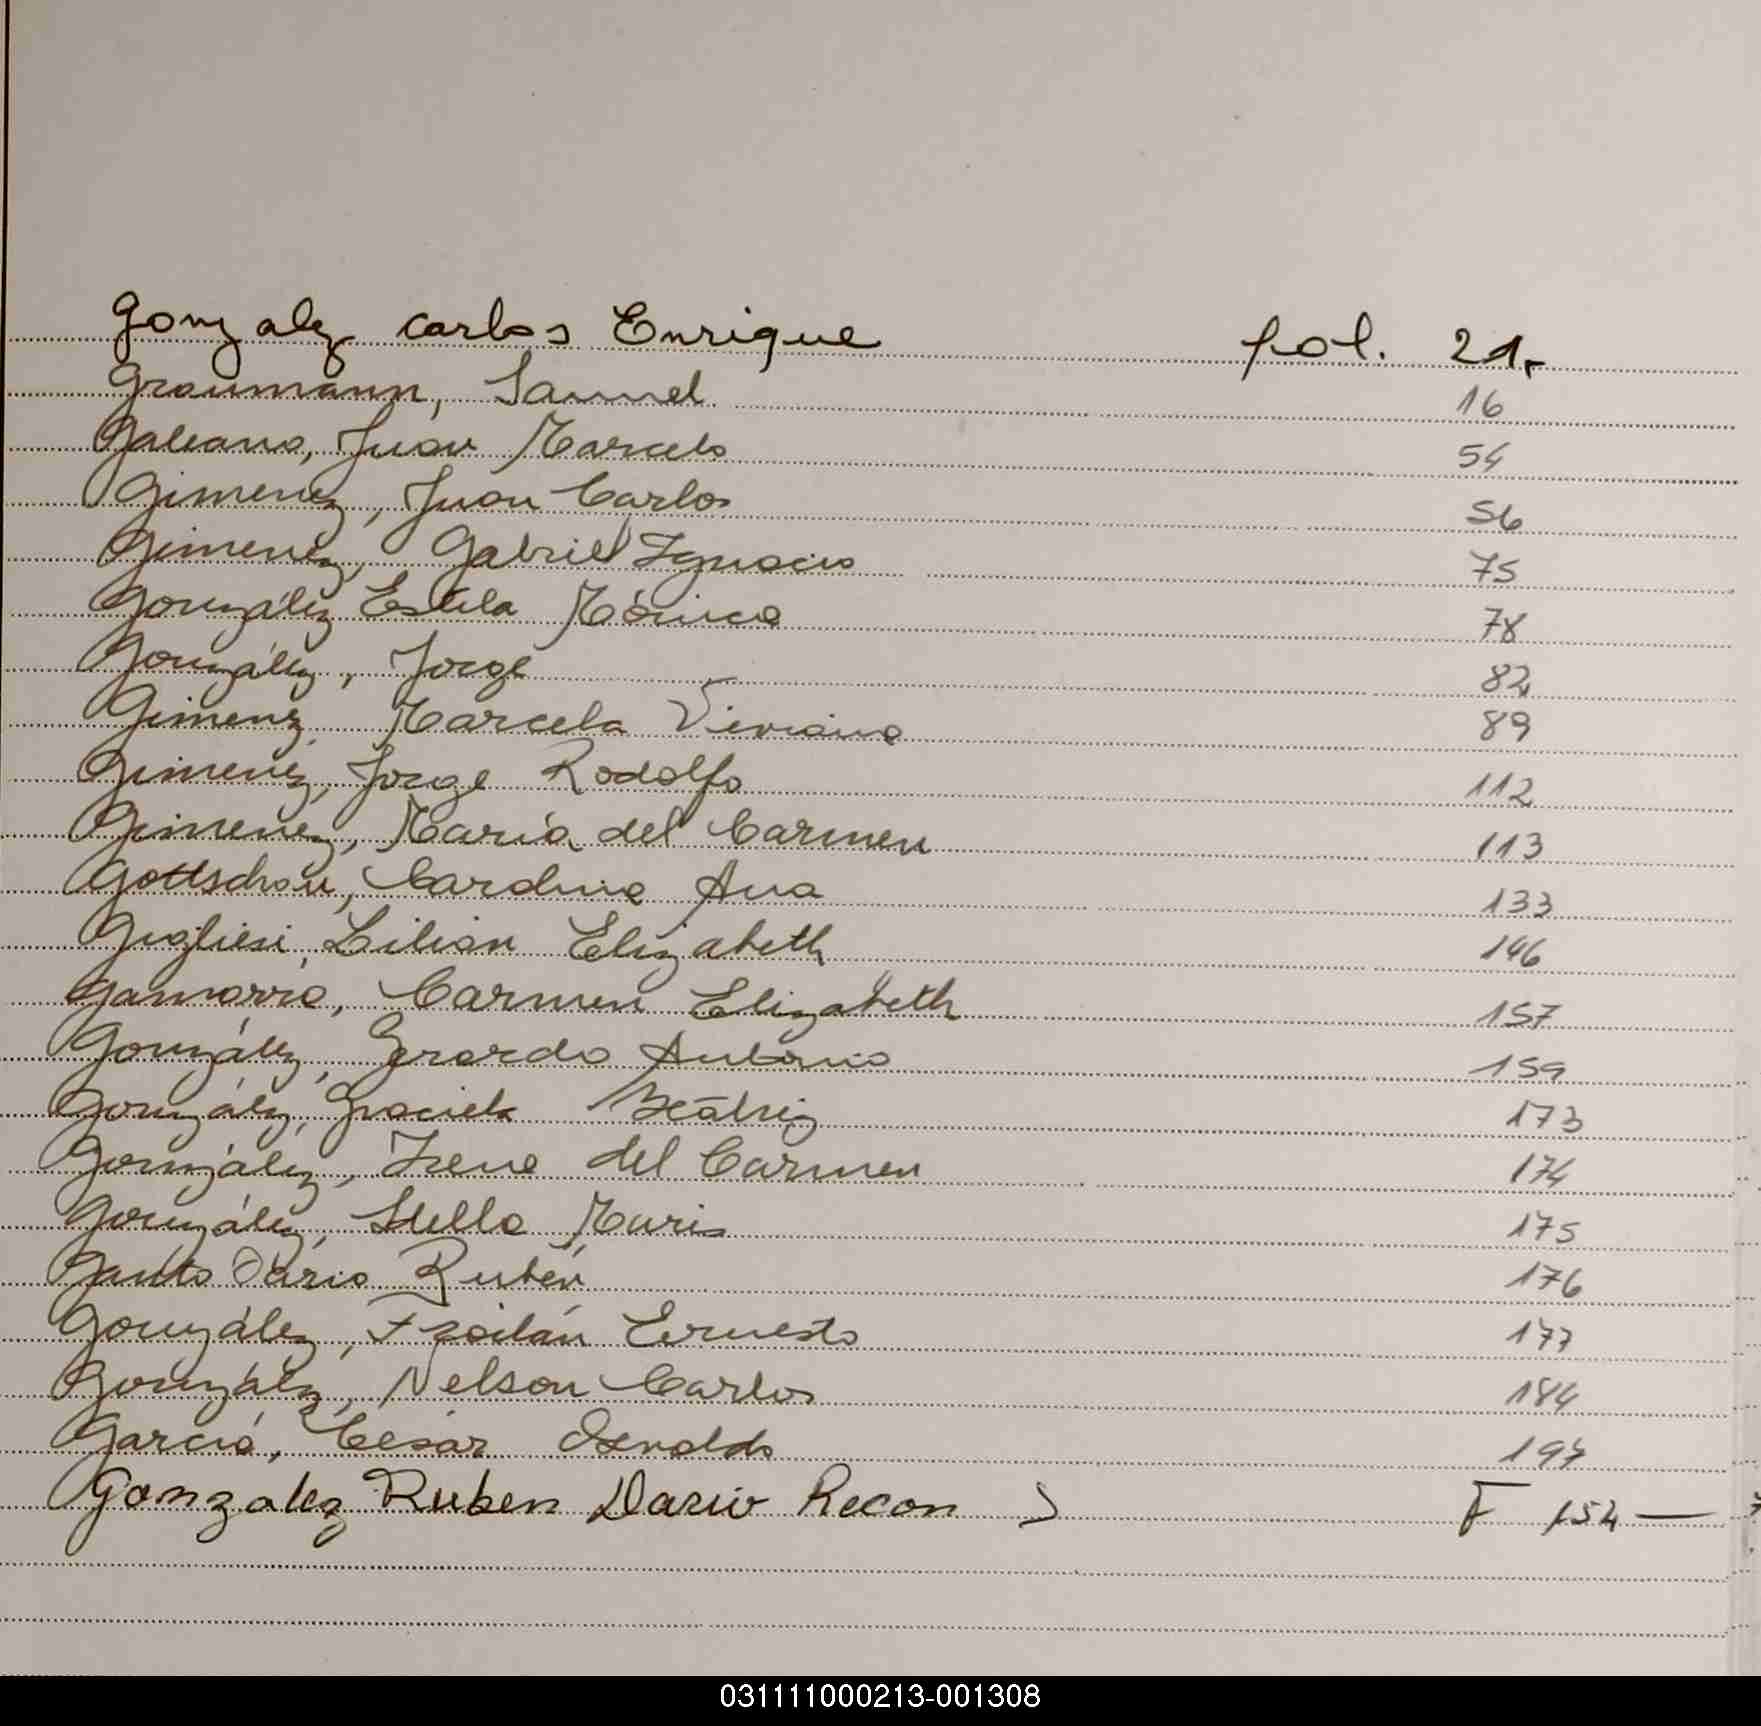 Gonzalez Carlos Enrique fol. 21,-
Graumann, Samuel 16
Galeano, Juan Marcelo 54
Gimenez, Juan Carlos 56
Gimenez, Gabriel Ignacio 75
González Estela Mónica 78
González, Jorge 82
Gimenez, Marcela Viviana 89
Gimenez, Jorge Rodolfo 112
Gimenez, María del Carmen 113
Gottschau, Carolina Ana 133
Gigliesi, Lilian Elizabeth 146
Gamarra, Carmen Elizabeth 157
González, Gerardo Antonio 159
González, Graciela Beátriz 173
González, Irene del Carmen 174
González, Stella Maris 175
Dario Rubén 176
González, Froilán Ernesto 177
González, Nelson Carlos 184
García, César Osvaldo 197
Gonzalez Ruben Dario Recon F 152 —
031111000213-001308